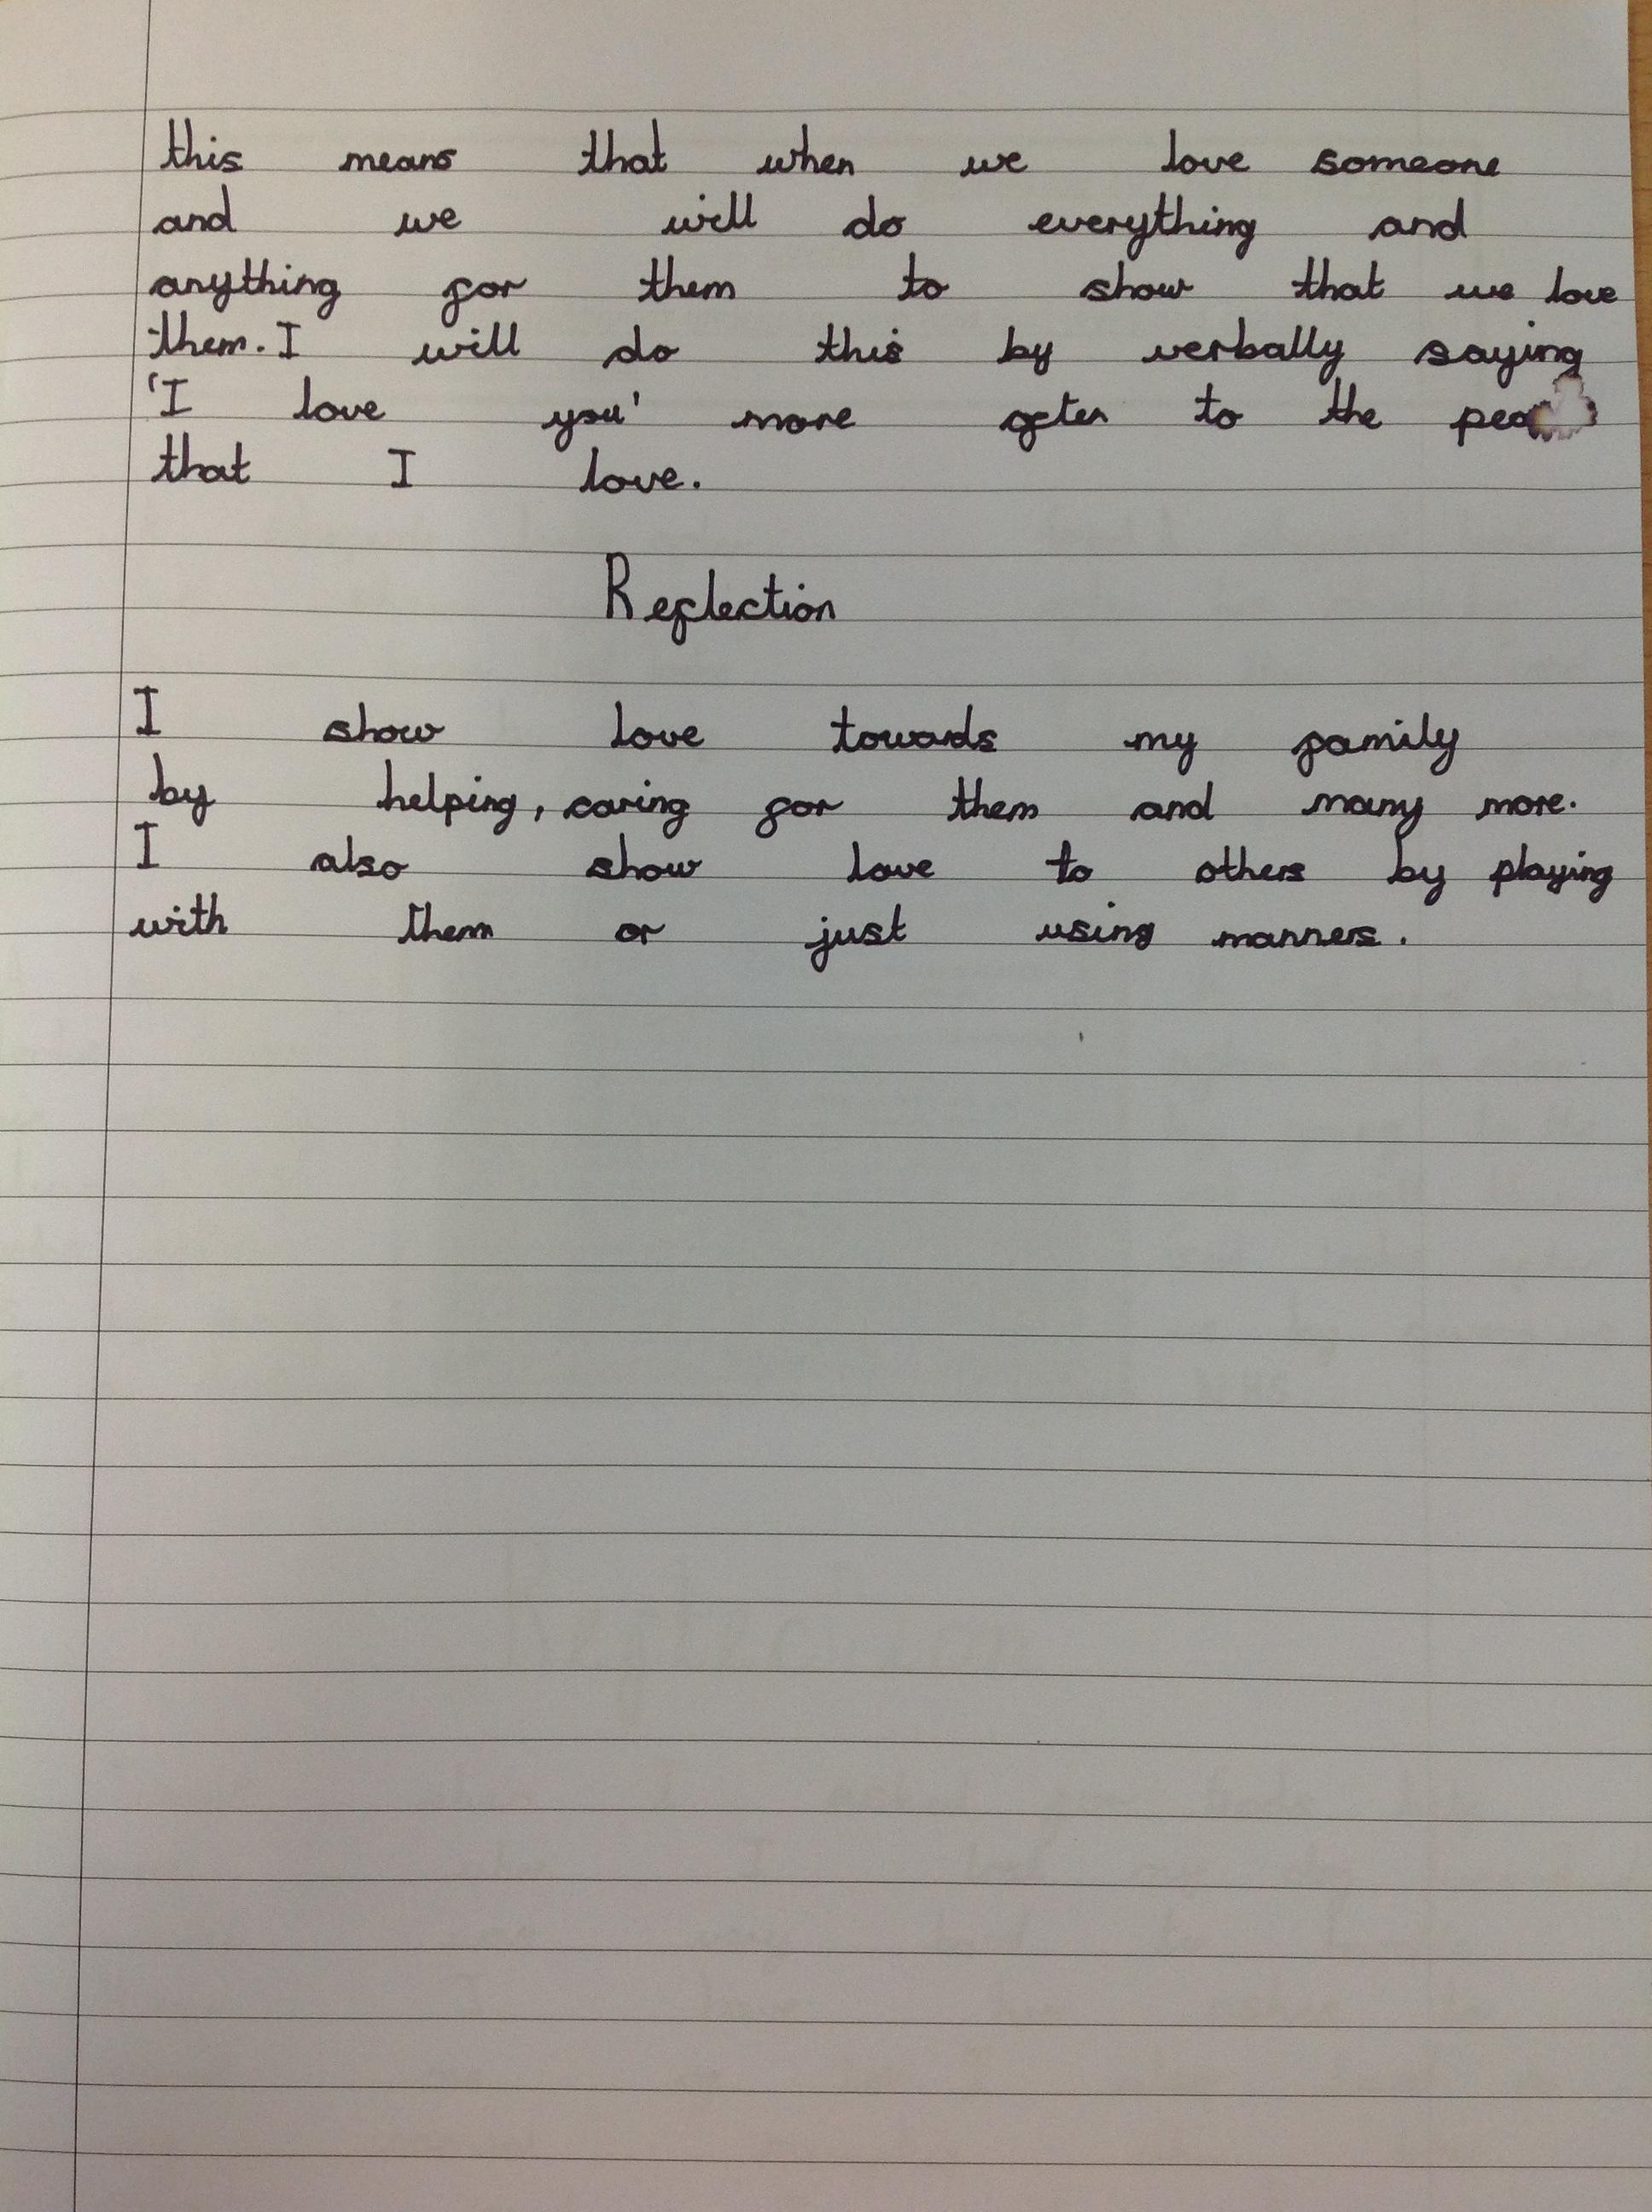 this means that when we love someone
and we will do everything and
anything for them to show that we love
them. I will do this by verbally saying
'I love you' more often to the
that I love.
Reflection
I show love towards my family
by helping, caring for them and many more.
I also show love to others by playing
with them or just using manners.